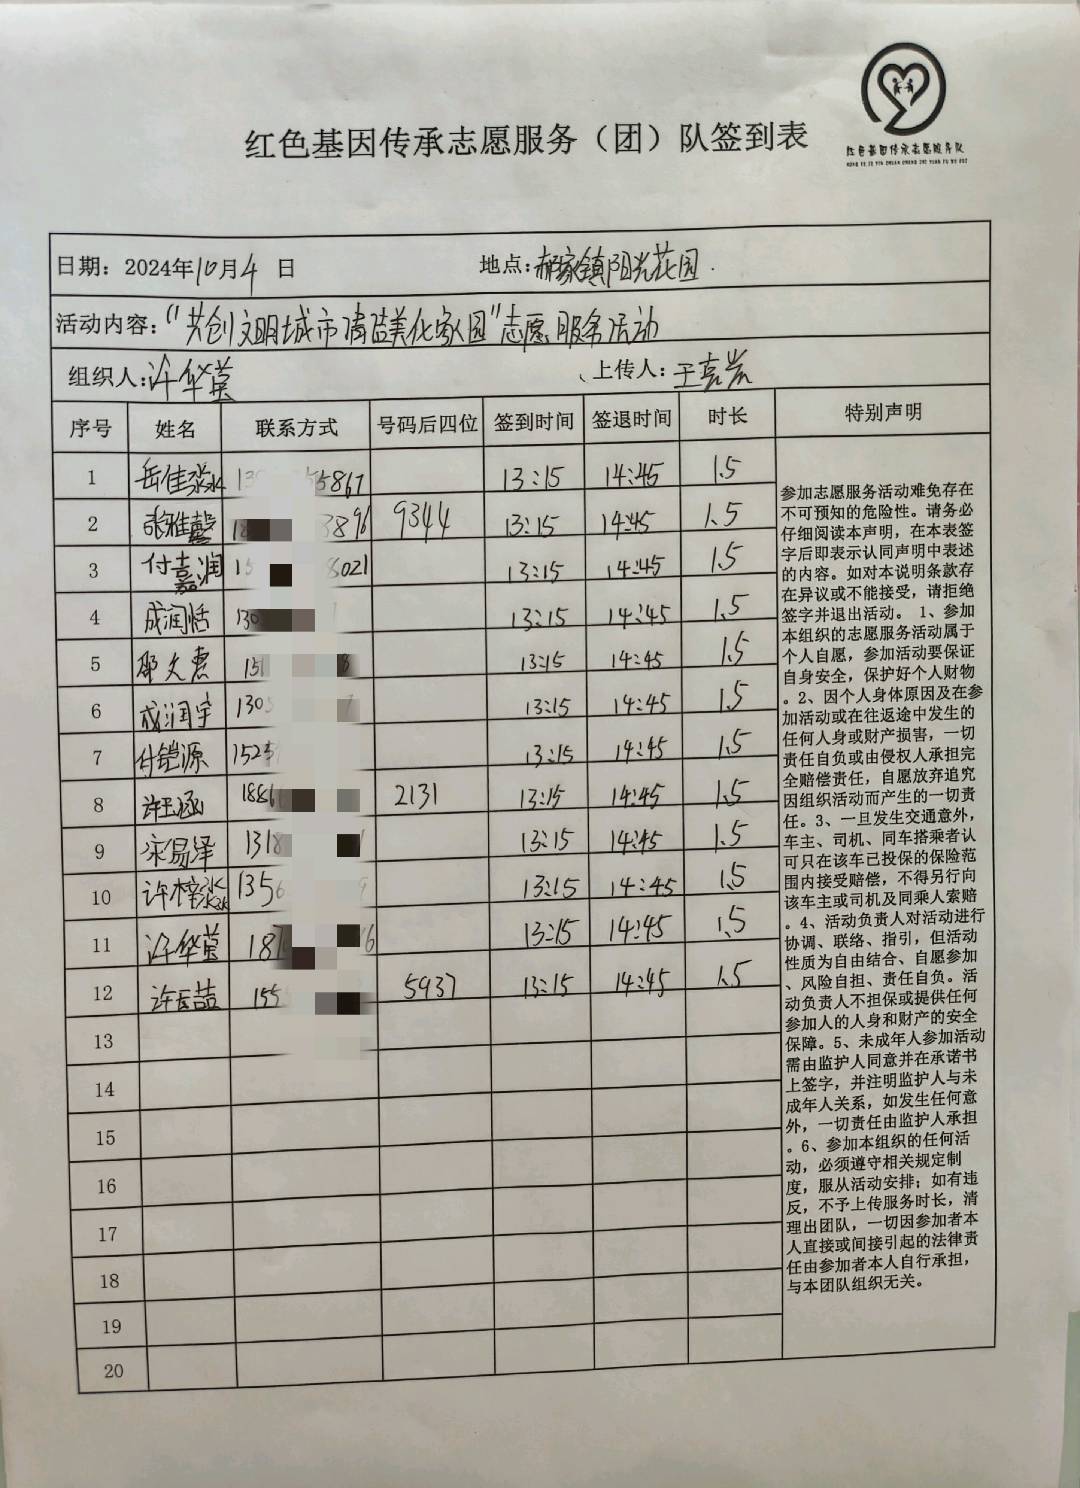 红色基因传承志愿服务队
HONG SE JI YIN CHUAN CHENG ZHI YUAN FU WU DUI
红色基因传承志愿服务（团）队签到表
日期：2024年10月4日 地点：郝家镇阳光花园
活动内容：“共创文明城市 清蓝美化家园”志愿服务活动
组织人：许华莹 、上传人：王嘉岩
序号 姓名 联系方式 号码后四位 签到时间 签退时间 时长 特别声明
1 岳佳淼 5867 13:15 14:45 1.5
2 张雅馨 18 3896 9344 13:15 14:45 1.5
3 付嘉润 15 8021 13:15 14:45 1.5
4 成润恬 130 13:15 14:45 1.5
5 邵文惠 151 8 13:15 14:45 1.5
6 成润宇 1305 7 13:15 14:45 1.5
7 付铠源 1525 13:15 14:45 1.5
8 许玉涵 1886 2131 13:15 14:45 1.5
9 宋易泽 1318 1 13:15 14:45 1.5
10 许梓淼 1356 9 13:15 14:45 1.5
11 许华莹 187 6 13:15 14:45 1.5
12 许喆 155 5937 13:15 14:45 1.5
13
14
15
16
17
18
19
20
参加志愿服务活动难免存在
不可预知的危险性。请务必
仔细阅读本声明，在本表签
字后即表示认同声明中表述
的内容。如对本说明条款存
在异议或不能接受，请拒绝
签字并退出活动。 1、参加
本组织的志愿服务活动属于
个人自愿，参加活动要保证
自身安全，保护好个人财物
。2、因个人身体原因及在参
加活动或在往返途中发生的
任何人身或财产损害，一切
责任自负或由侵权人承担完
全赔偿责任，自愿放弃追究
因组织活动而产生的一切责
任。3、一旦发生交通意外，
车主、司机、同车搭乘者认
可只在该车已投保的保险范
围内接受赔偿，不得另行向
该车主或司机及同乘人索赔
。4、活动负责人对活动进行
协调、联络、指引，但活动
性质为自由结合、自愿参加
、风险自担、责任自负。活
动负责人不担保或提供任何
参加人的人身和财产的安全
保障。5、未成年人参加活动
需由监护人同意并在承诺书
上签字，并注明监护人与未
成年人关系，如发生任何意
外，一切责任由监护人承担
。6、参加本组织的任何活
动，必须遵守相关规定制
度，服从活动安排；如有违
反，不予上传服务时长，清
理出团队，一切因参加者本
人直接或间接引起的法律责
任由参加者本人自行承担，
与本团队组织无关。